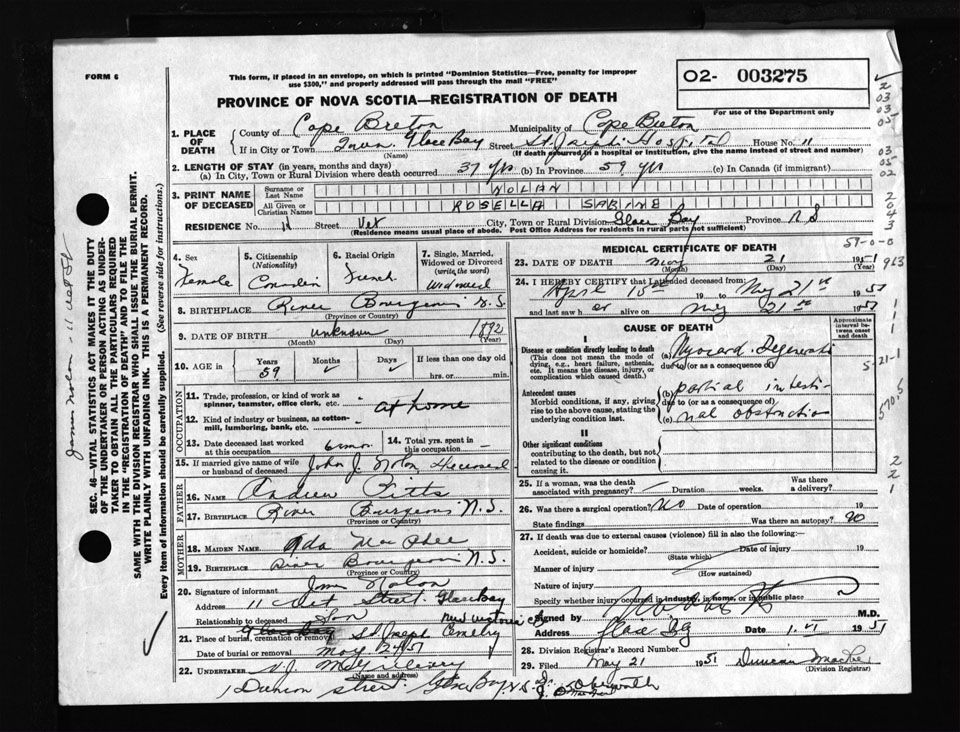 FORM 6
This form, if placed in an envelope, on which is printed "Dominion Statistics—Free, penalty for improper
use $300," and properly addressed will pass through the mail "FREE"
O2- 003275
For use of the Department only
PROVINCE OF NOVA SCOTIA—REGISTRATION OF DEATH
1. PLACE OF DEATH
County of Cape Breton Municipality of Cape Breton
If in City or Town Glace Bay Street St Joseph's Hospital House No. 11
(Name) (If death occurred in a hospital or institution, give the name instead of street and number)
2. LENGTH OF STAY (in years, months and days)
(a) In City, Town or Rural Division where death occurred 37 yrs (b) In Province 59 yrs (c) In Canada (if immigrant)
3. PRINT NAME OF DECEASED
Surname or Last Name NOLAN
All Given or Christian Names ROSELLA SABINE
RESIDENCE No. 11 Street City, Town or Rural Division Glace Bay Province N S
(Residence means usual place of abode. Post Office Address for residents in rural parts not sufficient)
4. Sex Female
5. Citizenship (Nationality) Canadian
6. Racial Origin French
7. Single, Married, Widowed or Divorced (write the word) Widowed
8. BIRTHPLACE River Bourgeois N.S.
(Province or Country)
9. DATE OF BIRTH unknown 1892
(Month) (Day)
10. AGE in Years 59 Months Days If less than one day old
hrs. or min.
OCCUPATION
11. Trade, profession, or kind of work as spinner, teamster, office clerk, etc. at home
12. Kind of industry or business, as cotton-mill, lumbering, bank, etc.
13. Date deceased last worked at this occupation 6 mon.
14. Total yrs. spent in this occupation —
15. If married give name of wife or husband of deceased John J. Nolan Deceased
FATHER
16. Name Andrew Pitts
17. Birthplace River Bourgeois N.S.
(Province or Country)
MOTHER
18. Maiden Name Ada MacPhee
19. Birthplace River Bourgeois N.S.
(Province or Country)
20. Signature of informant Jim Nolan
Address 11 Street Glace Bay
Relationship to deceased Son
21. Place of burial, cremation or removal Glace Bay St Joseph Cemetry
Date of burial or removal May 24 51
22. Undertaker
(Name and address)
street. Glace Bay, N.S.
MEDICAL CERTIFICATE OF DEATH
23. DATE OF DEATH May 21
(Month) (Day) (Year)
24. I HEREBY CERTIFY that I attended deceased from
April 15th 19 to May 21st 1951
and last saw h er alive on May 21st 1951
CAUSE OF DEATH
Approximate interval between onset and death
I
Disease or condition directly leading to death (a) Myocard.
(This does not mean the mode of dying, e.g., heart failure, asthenia, etc. It means the disease, injury, or complication which caused death.)
due to (or as a consequence of)
Antecedent causes (b) partial intesti-
Morbid conditions, if any, giving rise to the above cause, stating the underlying condition last.
due to (or as a consequence of)
(c) nal obstruction
II
Other significant conditions
contributing to the death, but not related to the disease or condition causing it.
25. If a woman, was the death associated with pregnancy? Duration weeks. Was there a delivery?
26. Was there a surgical operation? No Date of operation 19
State findings Was there an autopsy? no
27. If death was due to external causes (violence) fill in also the following:
Accident, suicide or homicide? Date of injury 19
(State which)
Manner of injury
(How sustained)
Nature of injury
Specify whether injury occurred in industry, in home, or in public place
Signed by M.D.
Address Glace Bay Date 1951
28. Division Registrar's Record Number
29. Filed May 21 1951 Duncan
(Division Registrar)
SEC. 46—VITAL STATISTICS ACT MAKES IT THE DUTY
OF THE UNDERTAKER OR PERSON ACTING AS UNDER-
TAKER TO OBTAIN ALL THE PARTICULARS REQUIRED
IN THE "REGISTRATION OF DEATH" AND TO FILE THE
SAME WITH THE DIVISION REGISTRAR WHO SHALL ISSUE THE BURIAL PERMIT.
WRITE PLAINLY WITH UNFADING INK. THIS IS A PERMANENT RECORD.
Every item of information should be carefully supplied. (See reverse side for instructions.)
2
03
03
05
03
05
02
2
0
4
3
59-0-0
963
5-21-1
570.5
2
2
1